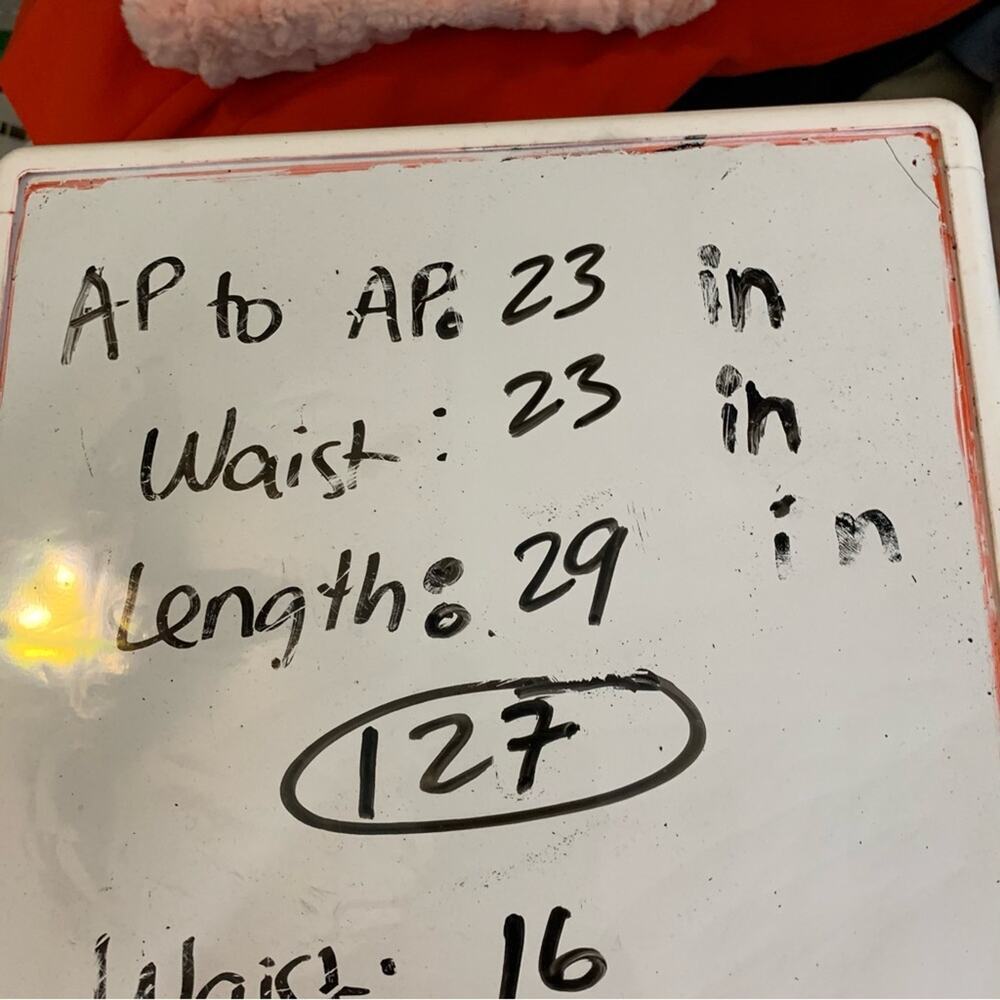 AP to AP: 23 in
Waist: 23 in
Length: 29 in
127
Waist: 16